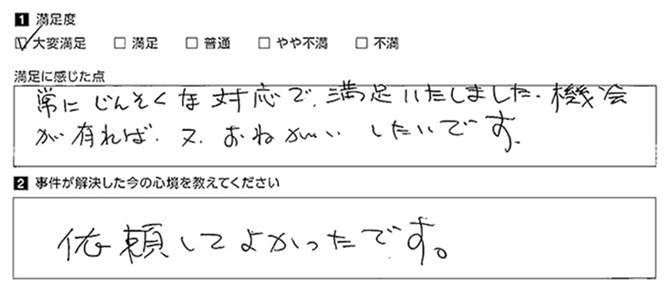 1 満足度
☑ 大変満足 □ 満足 □ 普通 □ やや不満 □ 不満
満足に感じた点
常にじんそくな対応で、満足いたしました。機会
が有れば、又、おねがいしたいです。
2 事件が解決した今の心境を教えてください
依頼してよかったです。